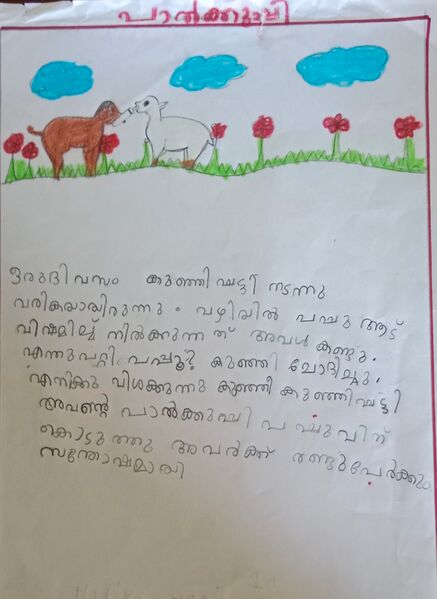 പാൽക്കുപ്പി
ഒരുദിവസം കുഞ്ഞിഷട്ടി നടന്നു
വരികയായിരുന്നു. വഴിയിൽ പച്ചു ആട്
വിഷമിച്ച് നിൽക്കുന്ന ത് അവൾ കണ്ടു.
എന്തുപറ്റി കുഞ്ഞി ചോദിച്ചു.
എനിക്കു വിശക്കുന്നു കുഞ്ഞീ കുഞ്ഞിഷട്ടി
അവന്റെ പാൽക്കുപ്പി പച്ചുവിന്
കൊടുത്തു അവർക്ക് രണ്ടുപേർക്കും
സന്തോഷമായി